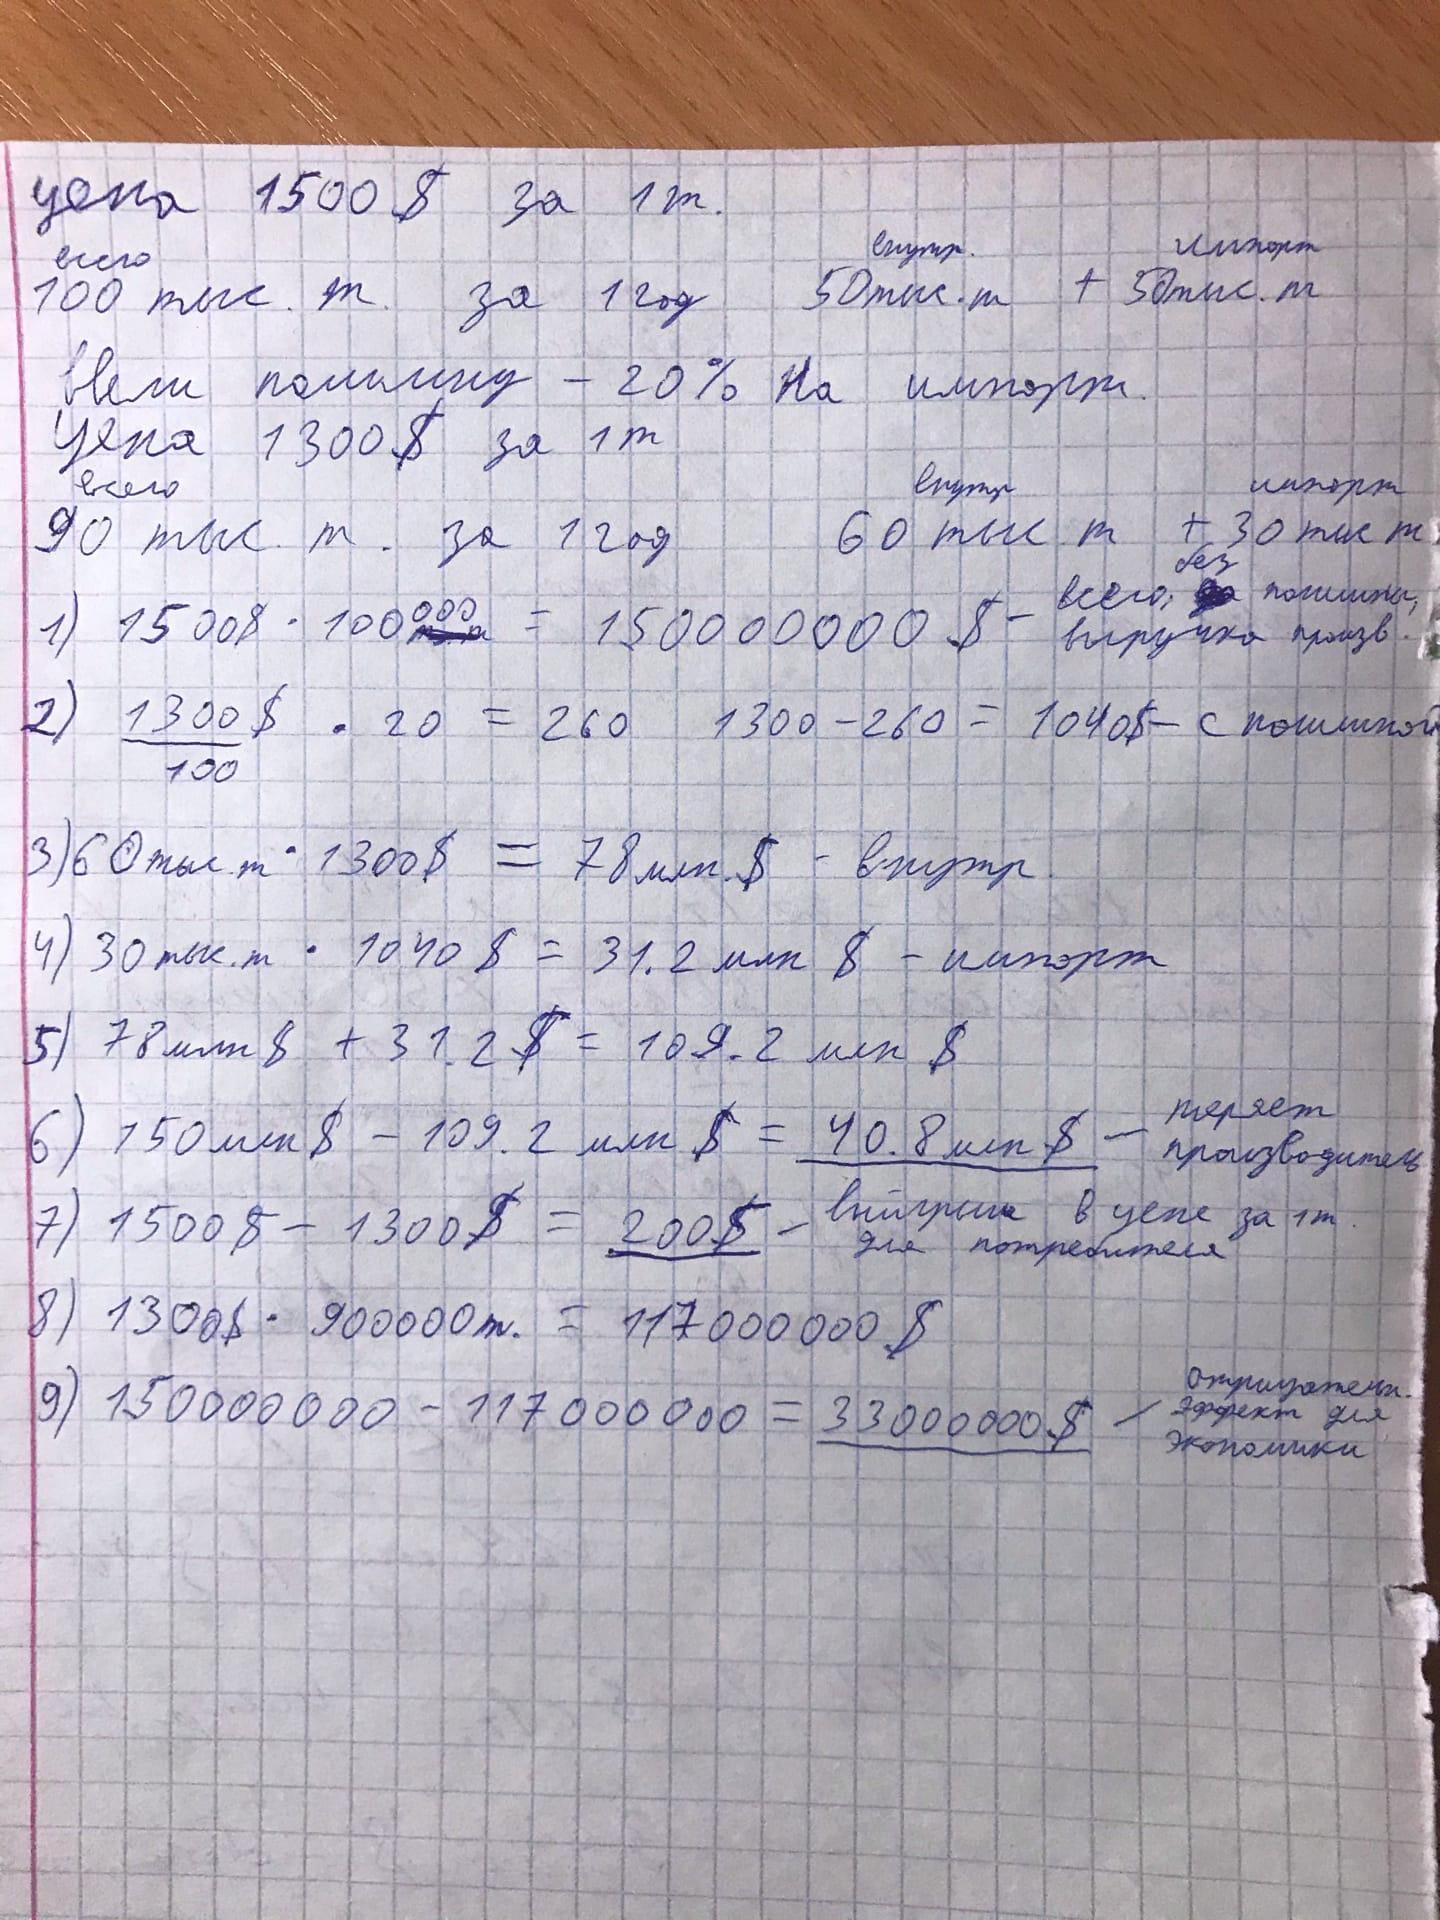 цена 1500$ за 1т.
всего внутр. импорт
100 тыс. т. за 1 год 50тыс.т + 50тыс.т
Ввели пошлину - 20% На импорт.
Цена 1300$ за 1т
всего внутр импорт
90 тыс. т. за 1 год 60 тыс. т + 30 тыс т
1) 1500$ · 100000 = 150000000 $ - всего, без пошлины,
выручка произв.
2) 1300$/100 · 20 = 260 1300 - 260 = 1040$ - с пошлиной
3) 60тыс.т · 1300$ = 78млн.$ - внутр.
4) 30тыс.т · 1040$ = 31.2 млн $ - импорт
5) 78млн$ + 31.2$ = 109.2 млн $
6) 150млн$ - 109.2 млн $ = 40.8млн $ - теряет
производитель
7) 1500$ - 1300$ = 200$ - выйгрыш в цене за 1т.
для потребителя
8) 1300$ · 900000т. = 117000000$
9) 150000000 - 117000000 = 33000000$ - отрицательн.
эффект для
экономики